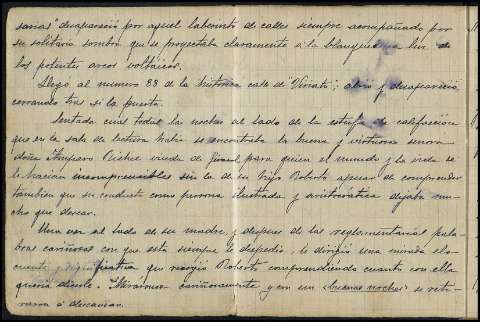 sarias" desapareció por aquel laberinto de calles siempre acompañado por
su solitaria sombra que se proyectaba claramente a la luz de
los potentes arcos voltaicos.
Llegó al numero 88 de la historica calle de "Viriato", abrio y desaparecio
cerrando tras si la puerta.
Sentada cual todas las noches al lado de la estufa de calefaccion
que en la sala de lectura habia se encontraba la buena y virtuosa señora
doña Amparo viuda de para quien el mundo y la vida se
le hacian incomprensibles sin la de su hijo Roberto apesar de comprender
tambien que su conducta como persona ilustrada y aristocrática dejaba mu-
cho que desear.
Una vez al lado de su madre, y despues de las reglamentarias pala-
bras cariñosas con que esta siempre le despedia, le dirigió una mirada elo-
cuente y significativa que recogio Roberto comprendiendo cuanto con ella
queria decirle. cariñosamente y con un "buenas noches" se reti-
raron á descansar.